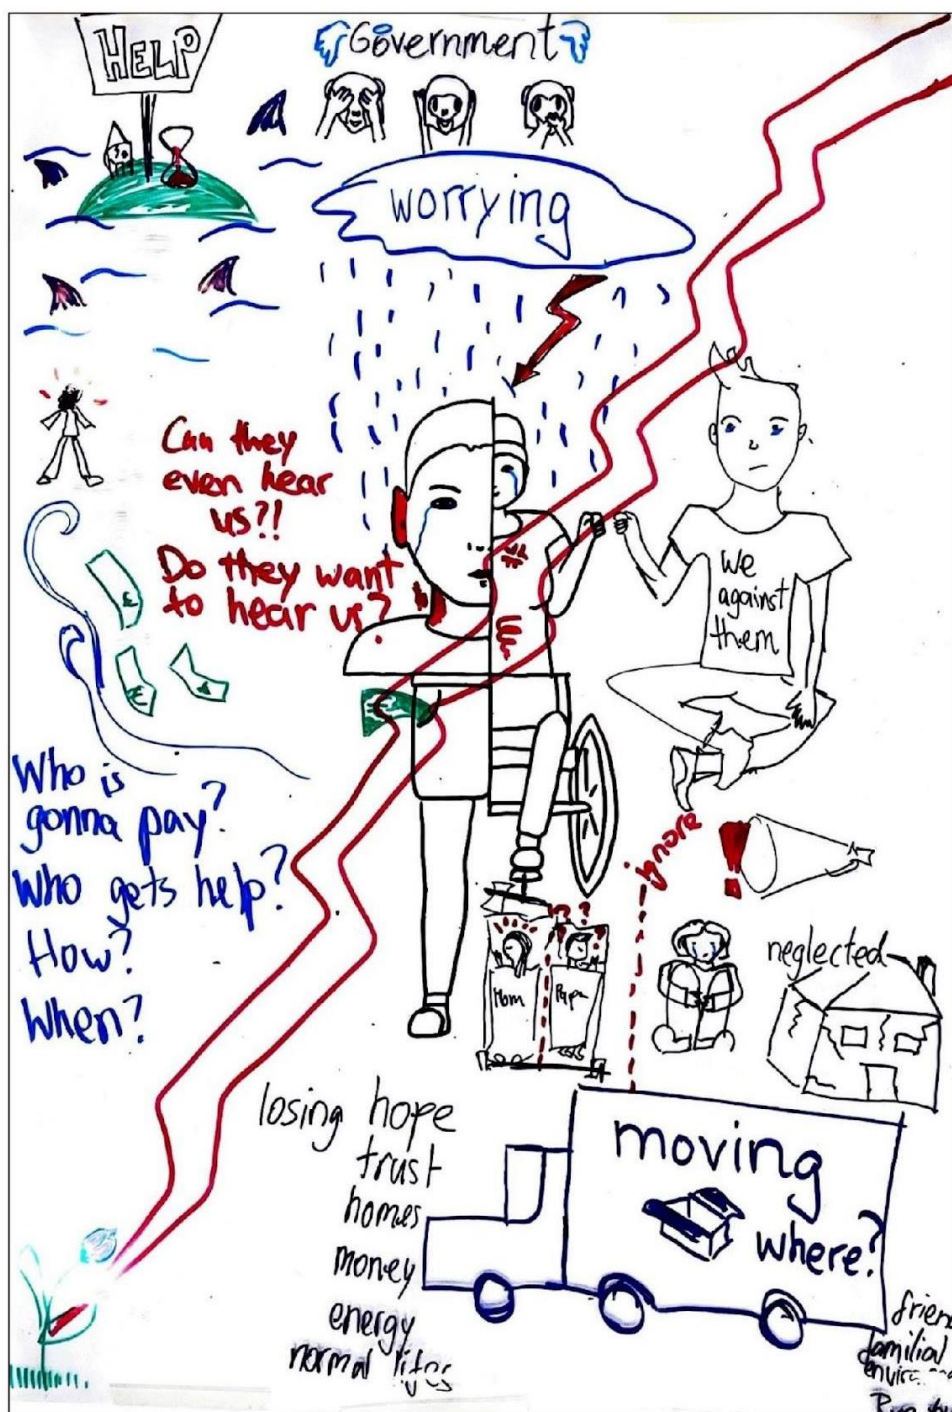 HELP
Government
worrying
Can they
even hear
us?!
Do they want
to hear us?
we
against
them
Who is
gonna pay?
Who gets help?
How?
When?
ignore
Mom
Papa
neglected
losing hope
trust
homes
money
energy
normal lifes
moving
where?
familial